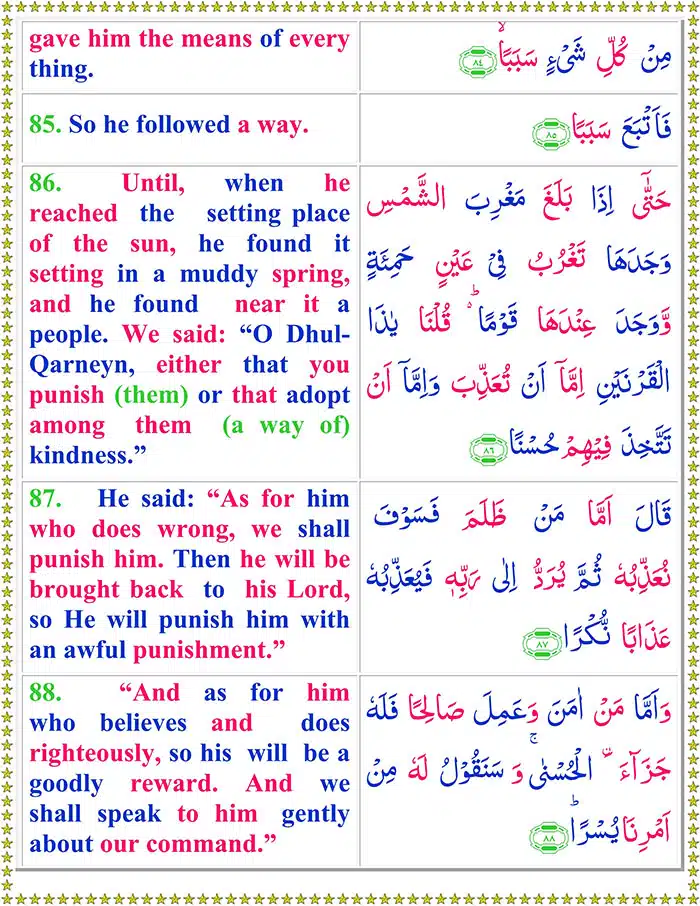 gave him the means of every
thing.
مِنۡ كُلِّ شَىۡءٍ سَبَبًاۙ ﴿۸۴﴾
85. So he followed a way.
فَاَتۡبَعَ سَبَبًا ﴿۸۵﴾
86. Until, when he
reached the setting place
of the sun, he found it
setting in a muddy spring,
and he found near it a
people. We said: “O Dhul-
Qarneyn, either that you
punish (them) or that adopt
among them (a way of)
kindness.”
حَتّٰٓى اِذَا بَلَغَ مَغۡرِبَ الشَّمۡسِ
وَجَدَهَا تَغۡرُبُ فِىۡ عَيۡنٍ حَمِئَةٍ
وَّوَجَدَ عِنۡدَهَا قَوۡمًا ؕ قُلۡنَا يٰذَا
الۡقَرۡنَيۡنِ اِمَّاۤ اَنۡ تُعَذِّبَ وَاِمَّاۤ اَنۡ
تَتَّخِذَ فِيۡهِمۡ حُسۡنًا ﴿۸۶﴾
87. He said: “As for him
who does wrong, we shall
punish him. Then he will be
brought back to his Lord,
so He will punish him with
an awful punishment.”
قَالَ اَمَّا مَنۡ ظَلَمَ فَسَوۡفَ
نُعَذِّبُهٗ ثُمَّ يُرَدُّ اِلٰى رَبِّهٖ فَيُعَذِّبُهٗ
عَذَابًا نُّكۡرًا ﴿۸۷﴾
88. “And as for him
who believes and does
righteously, so his will be a
goodly reward. And we
shall speak to him gently
about our command.”
وَاَمَّا مَنۡ اٰمَنَ وَعَمِلَ صَالِحًا فَلَهٗ
جَزَآءَ ۨ الۡحُسۡنٰى ۚ وَ سَنَقُوۡلُ لَهٗ مِنۡ
اَمۡرِنَا يُسۡرًا ؕ ﴿۸۸﴾